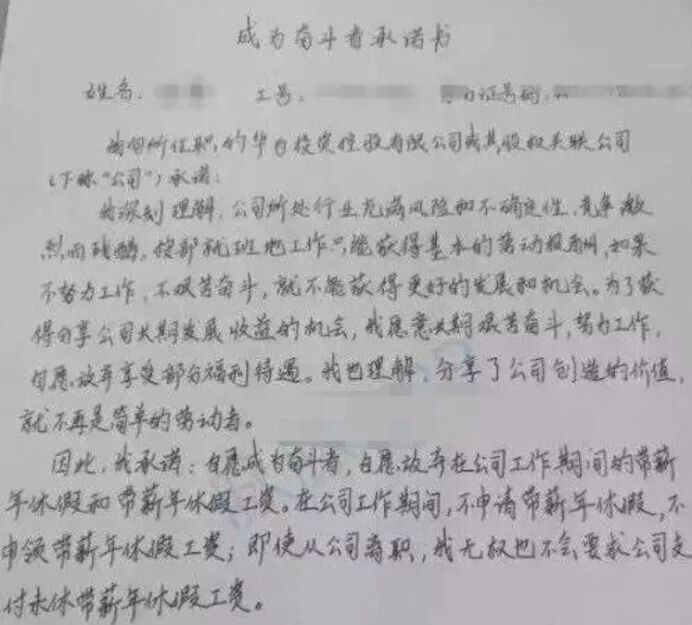 成为奋斗者承诺书
姓名: 工号: 证号码:
我向所任职的华为投资控股有限公司或其股权关联公司
(下称"公司")承诺:
我深刻理解,公司所处行业充满风险和不确定性,竞争激
烈而残酷,按部就班地工作只能获得基本的劳动报酬,如果
不努力工作,不艰苦奋斗,就不能获得更好的发展和机会。为了获
得分享公司长期发展收益的机会,我愿意长期艰苦奋斗,努力工作,
自愿放弃享受部分福利待遇。我也理解,分享了公司创造的价值,
就不再是简单的劳动者。
因此,我承诺:自愿成为奋斗者,自愿放弃在公司工作期间的带薪
年休假和带薪年休假工资。在公司工作期间,不申请带薪年休假,不
申领带薪年休假工资;即使从公司离职,我无权也不会要求公司支
付未休带薪年休假工资。